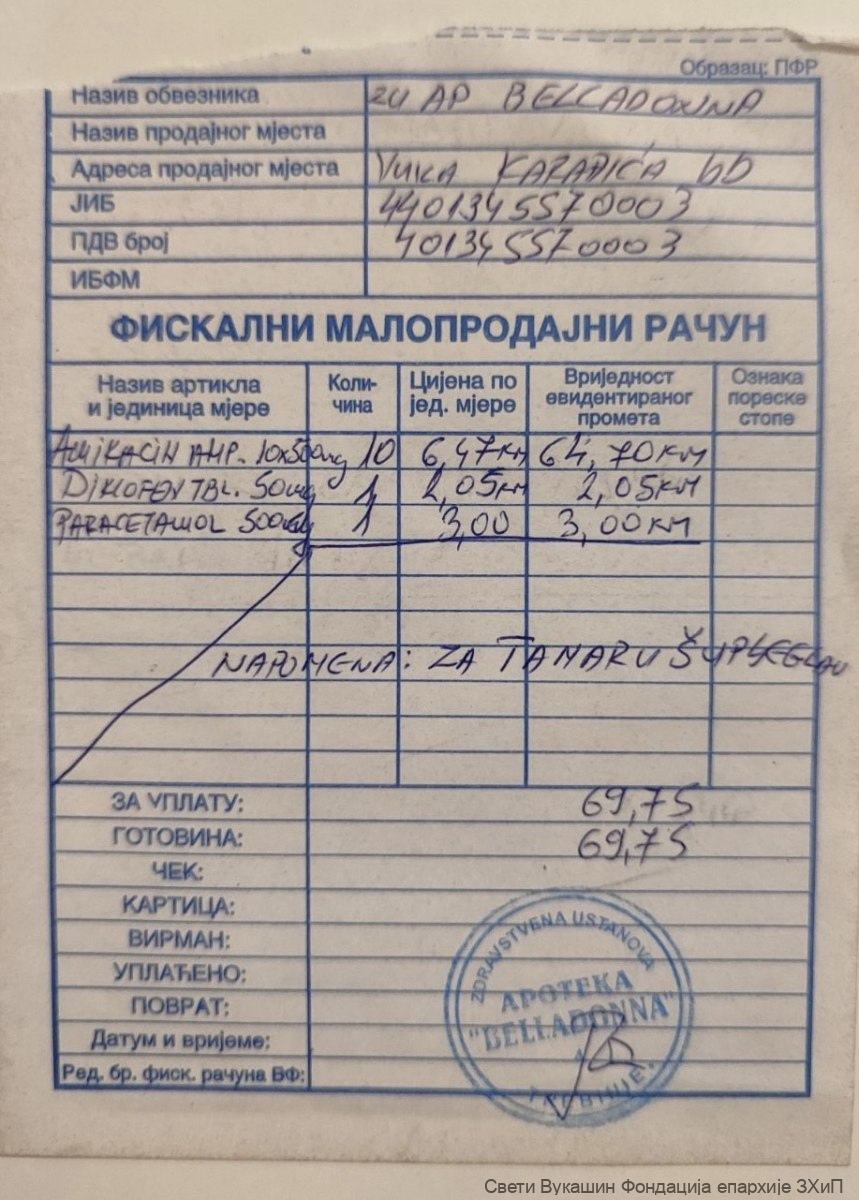 Образац: ПФР
Назив обвезника ZU AP BELLADONNA
Назив продајног мјеста
Адреса продајног мјеста VUKA KARADIĆA bb
ЈИБ 4401345570003
ПДВ број 401345570003
ИБФМ
ФИСКАЛНИ МАЛОПРОДАЈНИ РАЧУН
Назив артикла и јединица мјере Коли-чина Цијена по јед. мјере Вриједност евидентираног промета Ознака пореске стопе
AMIKACIN AMP. 10x500mg 10 6,47KM 64,70KM
DIKLOFEN TBL. 50mg 1 2,05KM 2,05KM
PARACETAMOL 500mg 1 3,00 3,00KM
NAPOMENA: ZA TAMARU ŠUPLJEGLAV
ЗА УПЛАТУ: 69,75
ГОТОВИНА: 69,75
ЧЕК:
КАРТИЦА:
ВИРМАН:
УПЛАЋЕНО:
ПОВРАТ:
Датум и вријеме:
Ред. бр. фиск. рачуна ВФ:
ZDRAVSTVENA USTANOVA
APOTEKA
"BELLADONNA"
TREBINJE
Свети Вукашин Фондација епархије ЗХиП